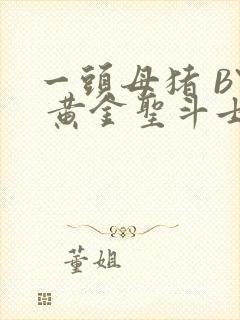 一頭母猪 BY
黄金聖斗士
董姐